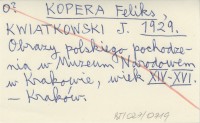 KOPERA Feliks,
KWIATKOWSKI J. 1929.
Obrazy polskiego pochodze-
nia w Muzeum Narodowem
w Krakowie, wiek XIV-XVI.
— Kraków.